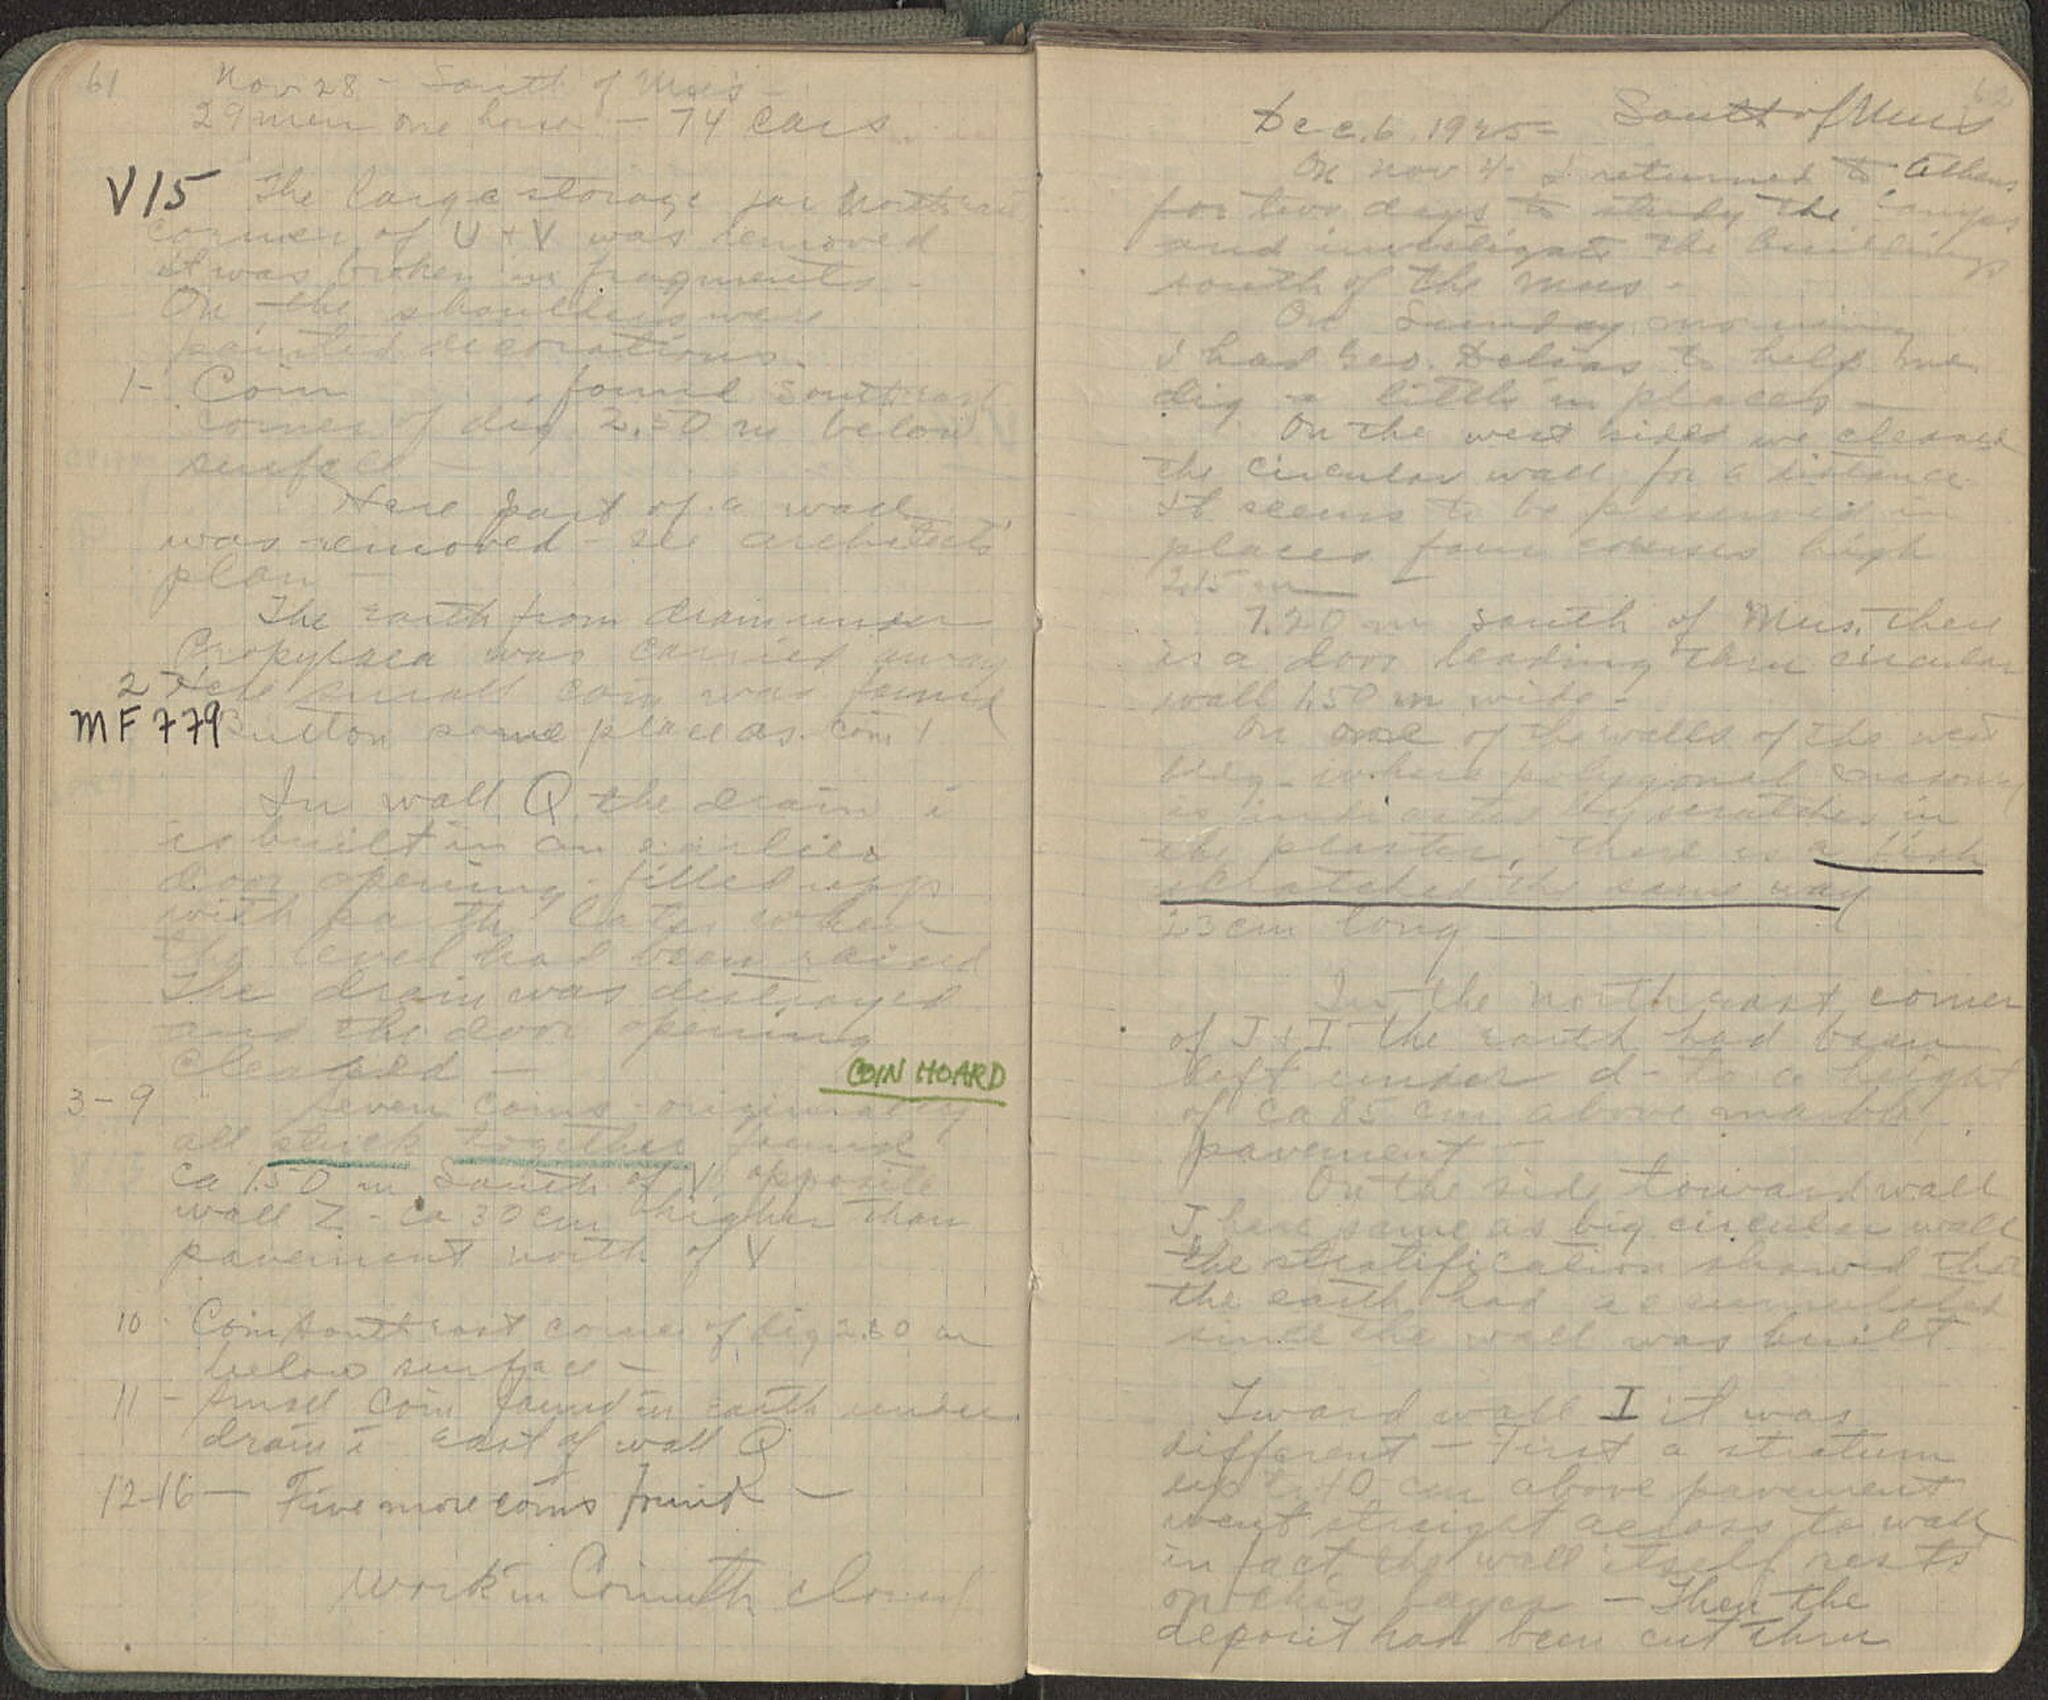 61
Nov 28 - South of Mus -
29 men one horse - 74 cars.
V15 The large storage jar North east
corner of U + V was removed
it was broken in fragments -
On the shoulders were
painted decorations.
1- Coin found South east
corner of dig 2.50 m below
surface -
Here part of a wall
was removed - see architects'
plan -
The earth from drain under
Propylaea was carried away
2 Here small coin was found
MF 779 Button same place as coin 1
In wall Q the drain i
is built in an earlier
door opening - filled upp
with earth later when
the level had been raised
The drain was destroyed
and the door opening
cleared -
COIN HOARD
3-9 Seven coins - originally
all stuck together found
ca 1.50 m South of V opposite
wall Z - ca 30 cm higher than
pavement north of V
10 - Coin South east corner of dig 2.80 m
below surface -
11 - Small coin found in earth under
drain i east of wall Q
12-16 - Five more coins found -
Work in Corinth closed
62
Dec. 6. 1925 - South of Mus
On Nov 4 - I returned to Athens
for two days to study the
and investigate the buildings
south of the Mus -
On Sunday morning
I had Geo. Delias to help me
dig a little in places -
On the west sides we cleared
the circular wall for a distance
It seems to be preserved in
places four courses high
2.15 m -
7.20 m South of Mus. there
is a door leading thru circular
wall 1.50 m wide -
On one of the walls of the west
bldg - where polygonal masonry
is indicated by scratches in
the plaster, there is a fish
scratched the same way
23 cm long -
In the north east corner
of J + I the earth had been
left under d - to a height
of ca 85 cm above marble
pavement -
On the side toward wall
J, here same as big circular wall
the stratification showed that
the earth had accumulated
since the wall was built
Toward wall I it was
different - First a stratum
up to 40 cm above pavement
went straight across to wall
in fact the wall itself rests
on this layer - Then the
deposit had been cut thru